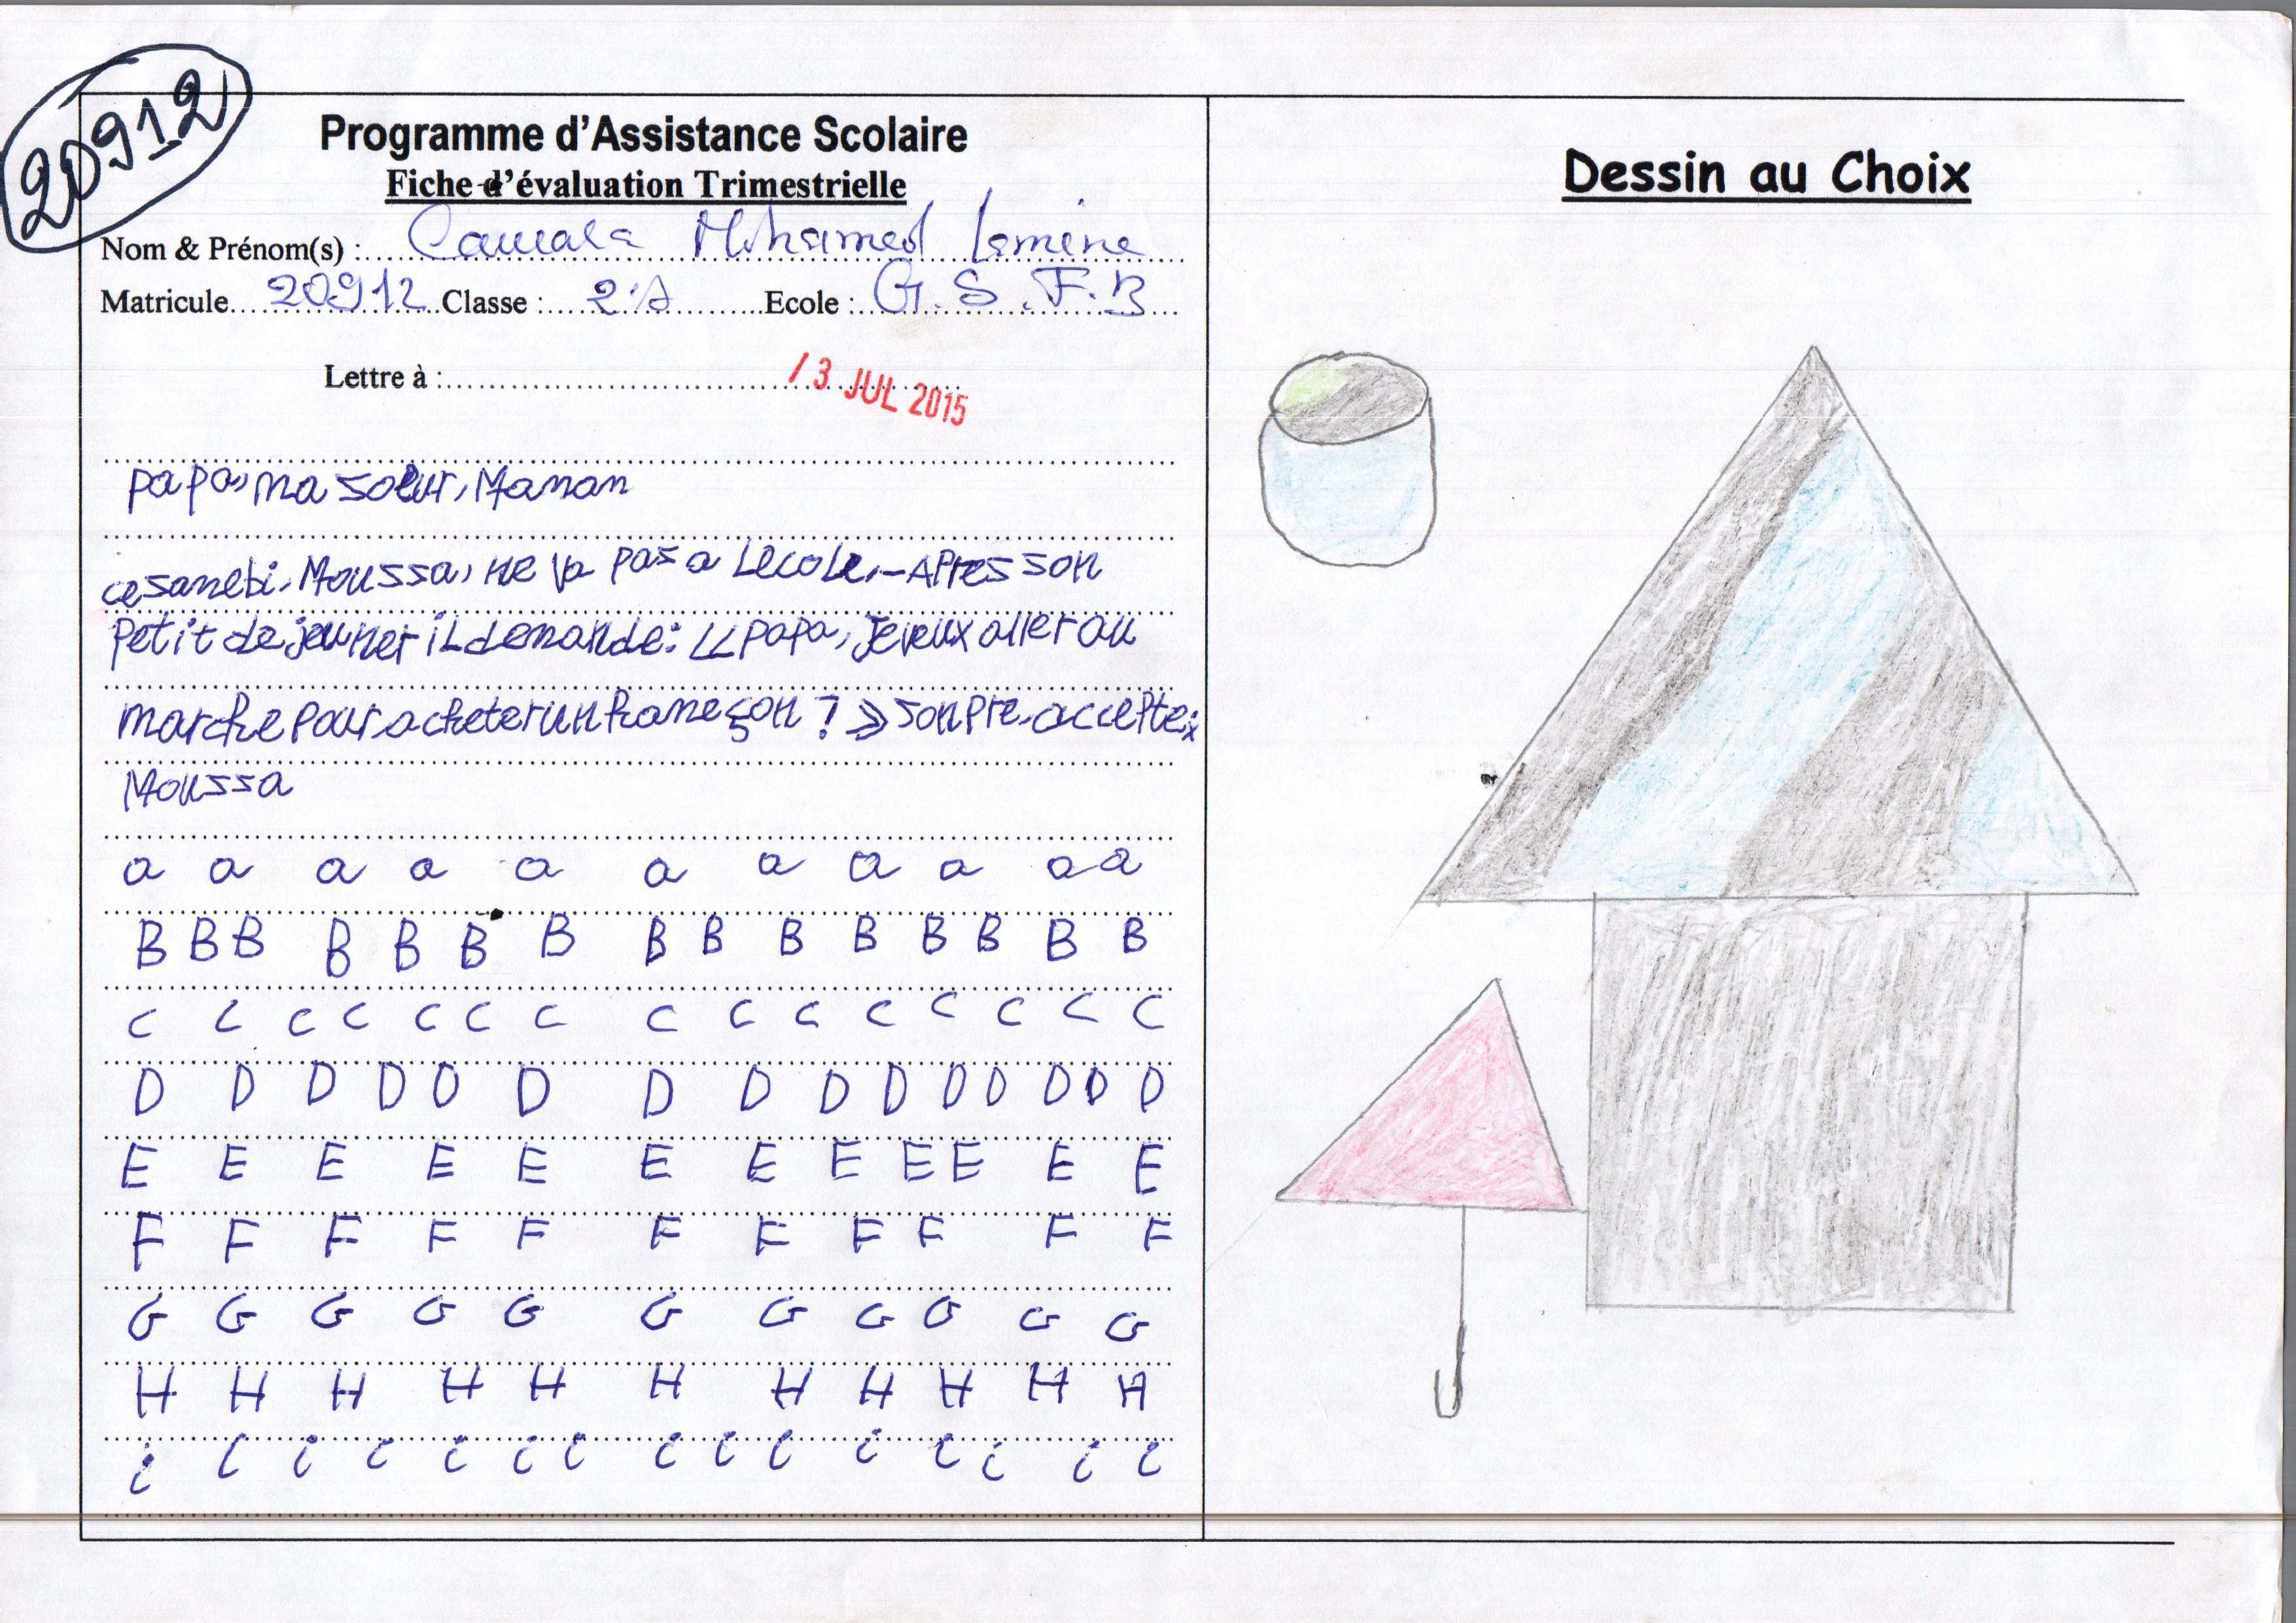 20912
Programme d'Assistance Scolaire
Fiche d'évaluation Trimestrielle
Nom & Prénom(s) : Camara Mohamed Lamine
Matricule 20912 Classe : 2:A Ecole : G.S.F.B
Lettre à :
13 JUL 2015
papa, ma soeur, Maman
ce samebi. Moussa, ne va pas a Lecole.-Apres son
petit dejeuner il demande: << papa, je veux aller au
marche pour acheter un hameçon ? >> son pre. accepte:
Moussa
a a a a a a a a a a a
B B B B B B B B B B B B B B B
c c c c c c c c c c c c c c c
D D D D D D D D D D D D D D D
E E E E E E E E E E E E
F F F F F F F F F F F
G G G G G G G G G G G
H H H H H H H H H H H
i i i i i i i i i i i i i i i
Dessin au Choix